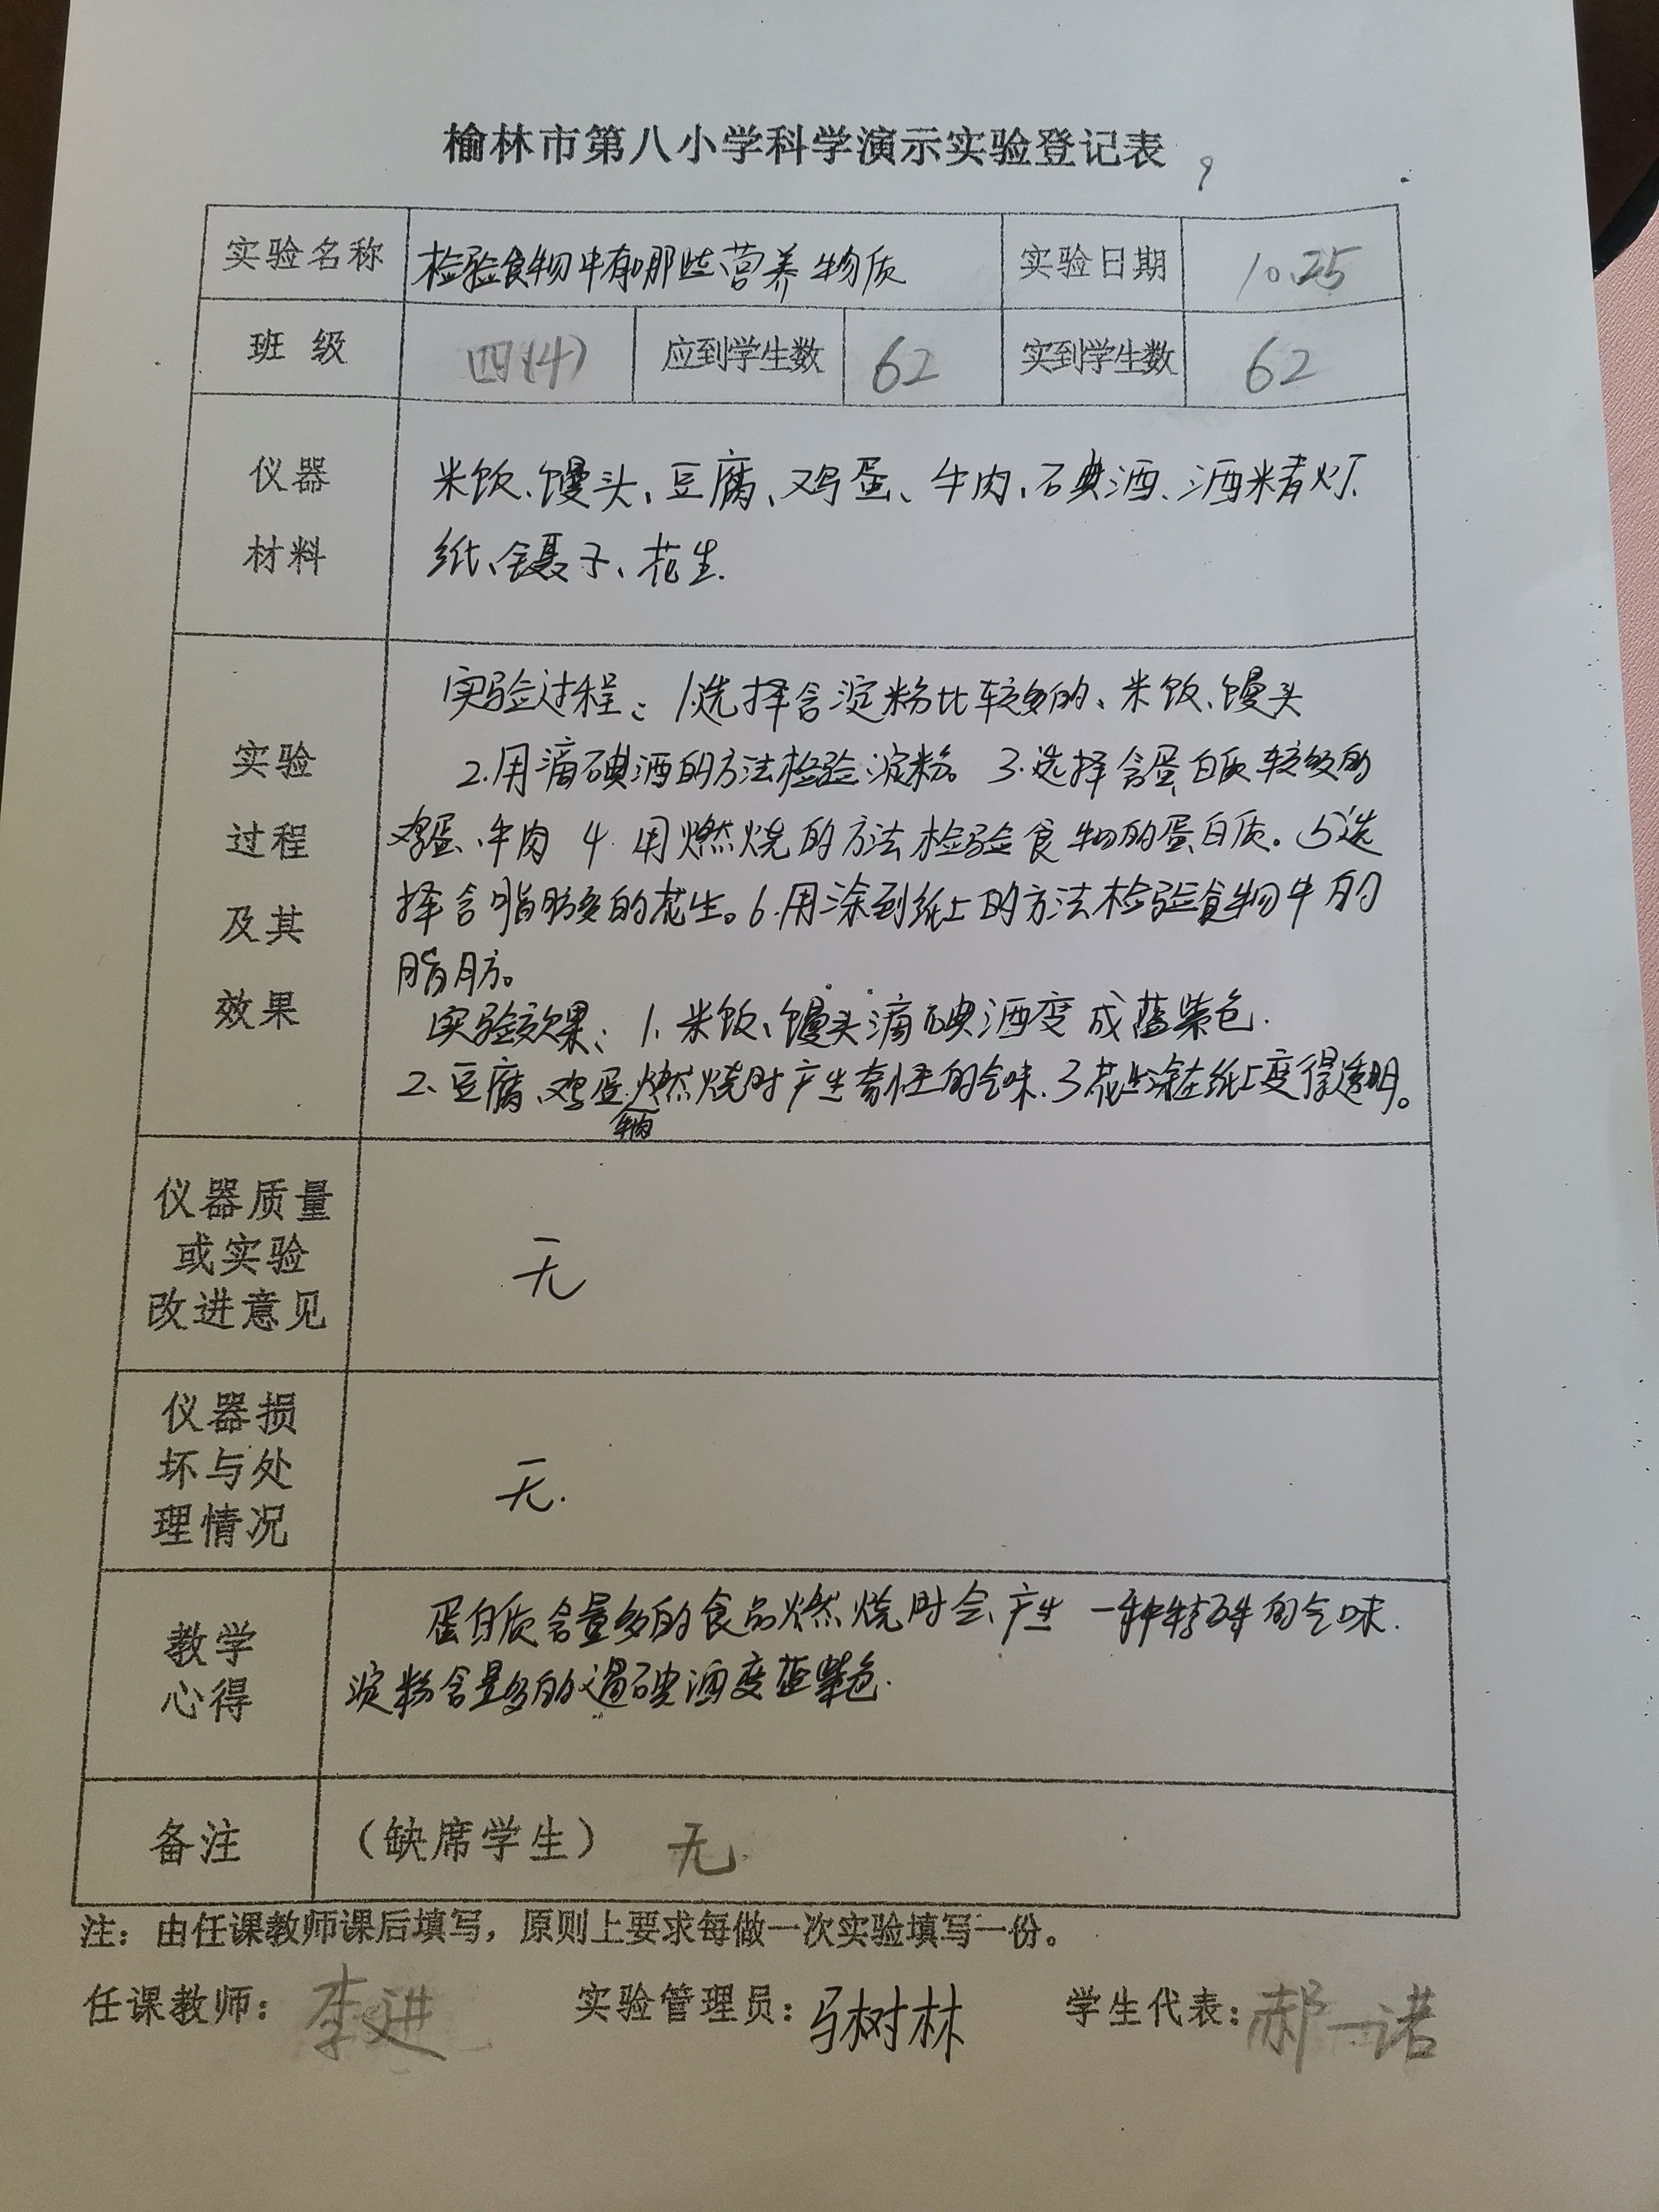 榆林市第八小学科学演示实验登记表
实验名称 检验食物中有那些营养物质 实验日期 10.25
班级 四(4) 应到学生数 62 实到学生数 62
仪器
材料
米饭、馒头、豆腐、鸡蛋、牛肉、碘酒、酒精灯、
纸、镊子、花生.
实验
过程
及其
效果
实验过程: 1.选择含淀粉比较多的、米饭、馒头
2.用滴碘酒的方法检验淀粉。3.选择含蛋白质较多的
鸡蛋、牛肉 4.用燃烧的方法检验食物的蛋白质。5选
择含脂肪多的花生。6.用涂到纸上的方法检验食物中的
脂肪。
实验效果: 1、米饭、馒头滴碘酒变成蓝紫色.
2、豆腐、鸡蛋、燃烧时产生奇怪的气味.3花生涂在纸上变得透明。
牛肉
仪器质量
或实验
改进意见
无
仪器损
坏与处
理情况
无.
教学
心得
蛋白质含量多的食品燃烧时会产生一种特殊的气味.
淀粉含量多的遇碘酒变蓝紫色.
备注 (缺席学生) 无
注: 由任课教师课后填写, 原则上要求每做一次实验填写一份。
任课教师: 李进 实验管理员: 马树林 学生代表: 郝一诺